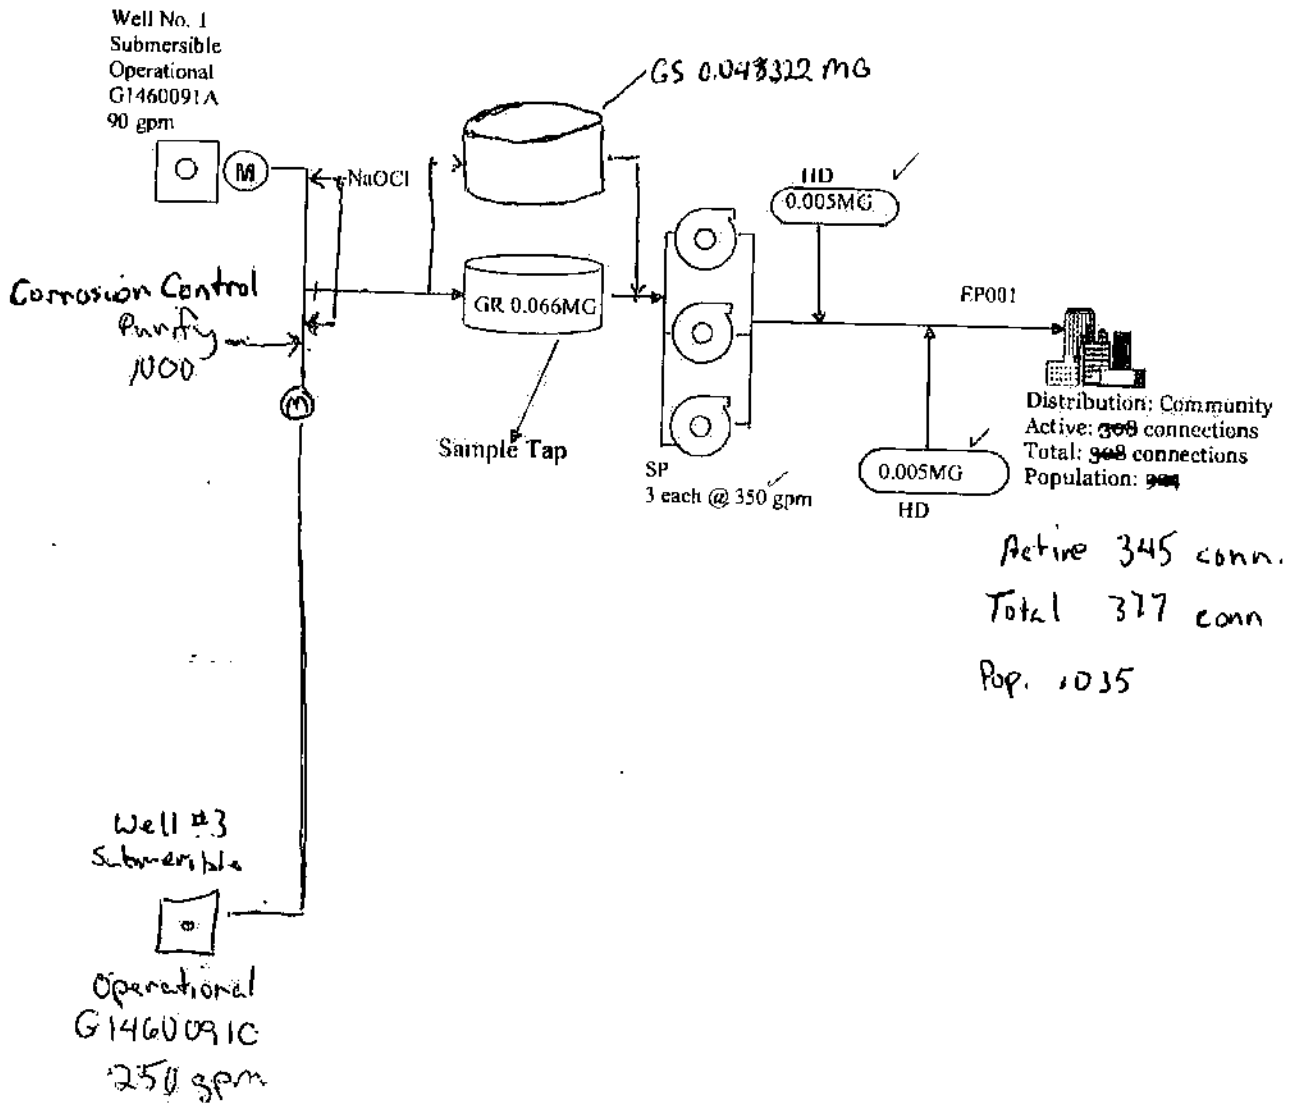 Well No. 1
Submersible
Operational
G1460091A
90 gpm
GS 0.048322 MG
M
NaOCl
HD
0.005MG
Corrosion Control
GR 0.066MG
EP001
M
Sample Tap
SP
3 each @ 350 gpm
0.005MG
HD
Distribution: Community
Active: connections
Total: connections
Population:
Active 345 conn.
Total 377 conn
Pop. 1035
Well #3
Submersible
Operational
G1460091C
250 gpm